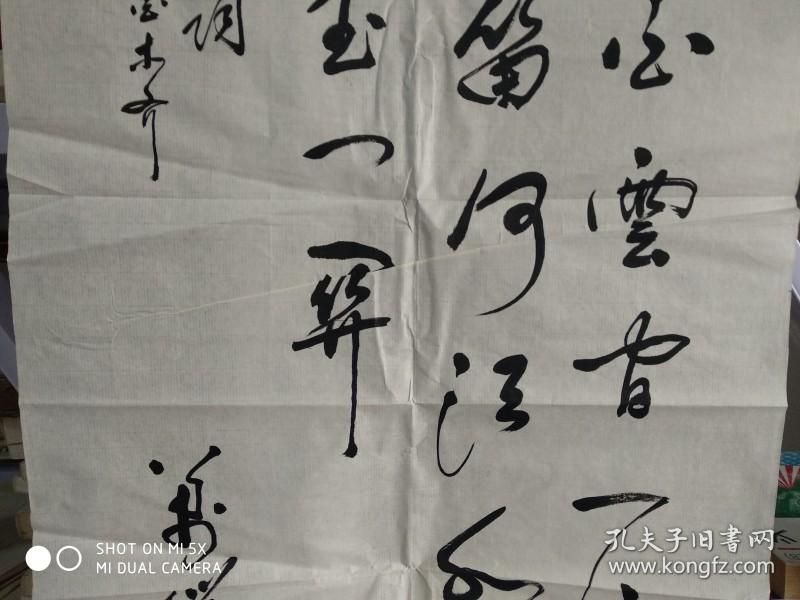 白雲间一
笛何須
玉门関
词
鲁木齐
萬
SHOT ON MI 5X
MI DUAL CAMERA
孔夫子旧书网
www.kongfz.com